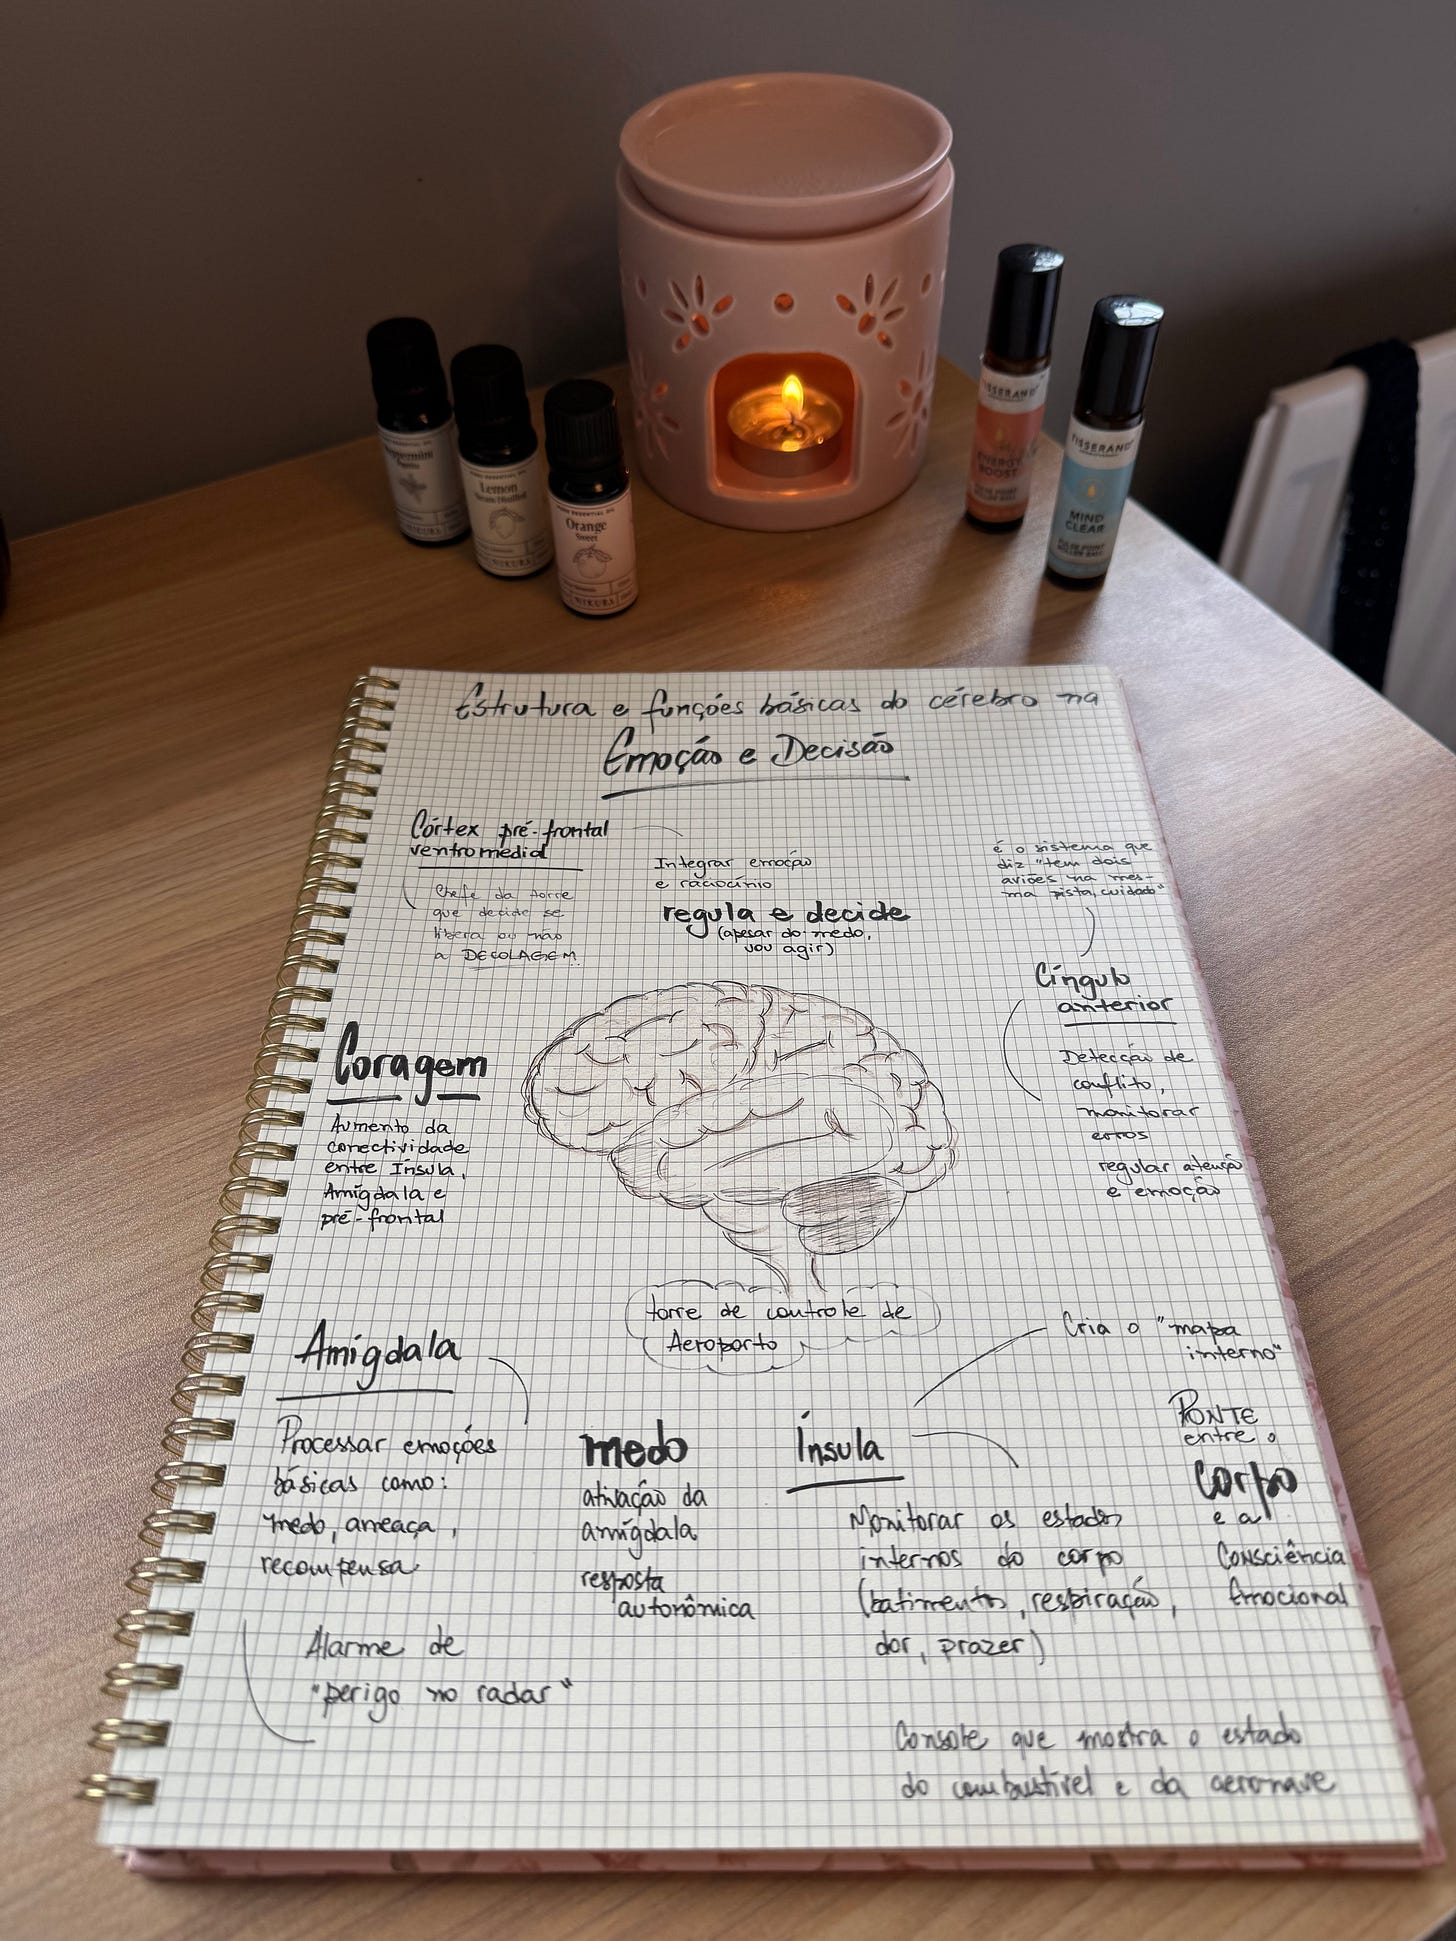 Peppermint
Lemon
Steam Distilled
PURE ESSENTIAL OIL
Orange
Sweet
NIKURA
TISSERAND
ENERGY
BOOST
PULSE POINT
ROLLER BALL
TISSERAND
AROMATHERAPY
MIND
CLEAR
PULSE POINT
ROLLER BALL
Estrutura e funções básicas do cérebro na
Emoção e Decisão
Córtex pré-frontal
ventromedial
Chefe da torre
que decide se
libera ou não
a DECOLAGEM
Integrar emoção
e raciocínio
regula e decide
(apesar do medo,
vou agir)
é o sistema que
diz "tem dois
aviões na mes-
ma pista, cuidado"
Cíngulo
anterior
Detecção de
conflito,
monitorar
erros
regular atenção
e emoção
Coragem
Aumento da
conectividade
entre Ínsula,
Amígdala e
pré-frontal
torre de controle de
Aeroporto
Amígdala
Processar emoções
básicas como:
medo, ameaça,
recompensa.
Alarme de
"perigo no radar"
medo
ativação da
amígdala
resposta
autonômica
Ínsula
Cria o "mapa
interno"
Monitorar os estados
internos do corpo
(batimentos, respiração,
dor, prazer)
PONTE
entre o
Corpo
e a
Consciência
Emocional
Console que mostra o estado
do combustível e da aeronave